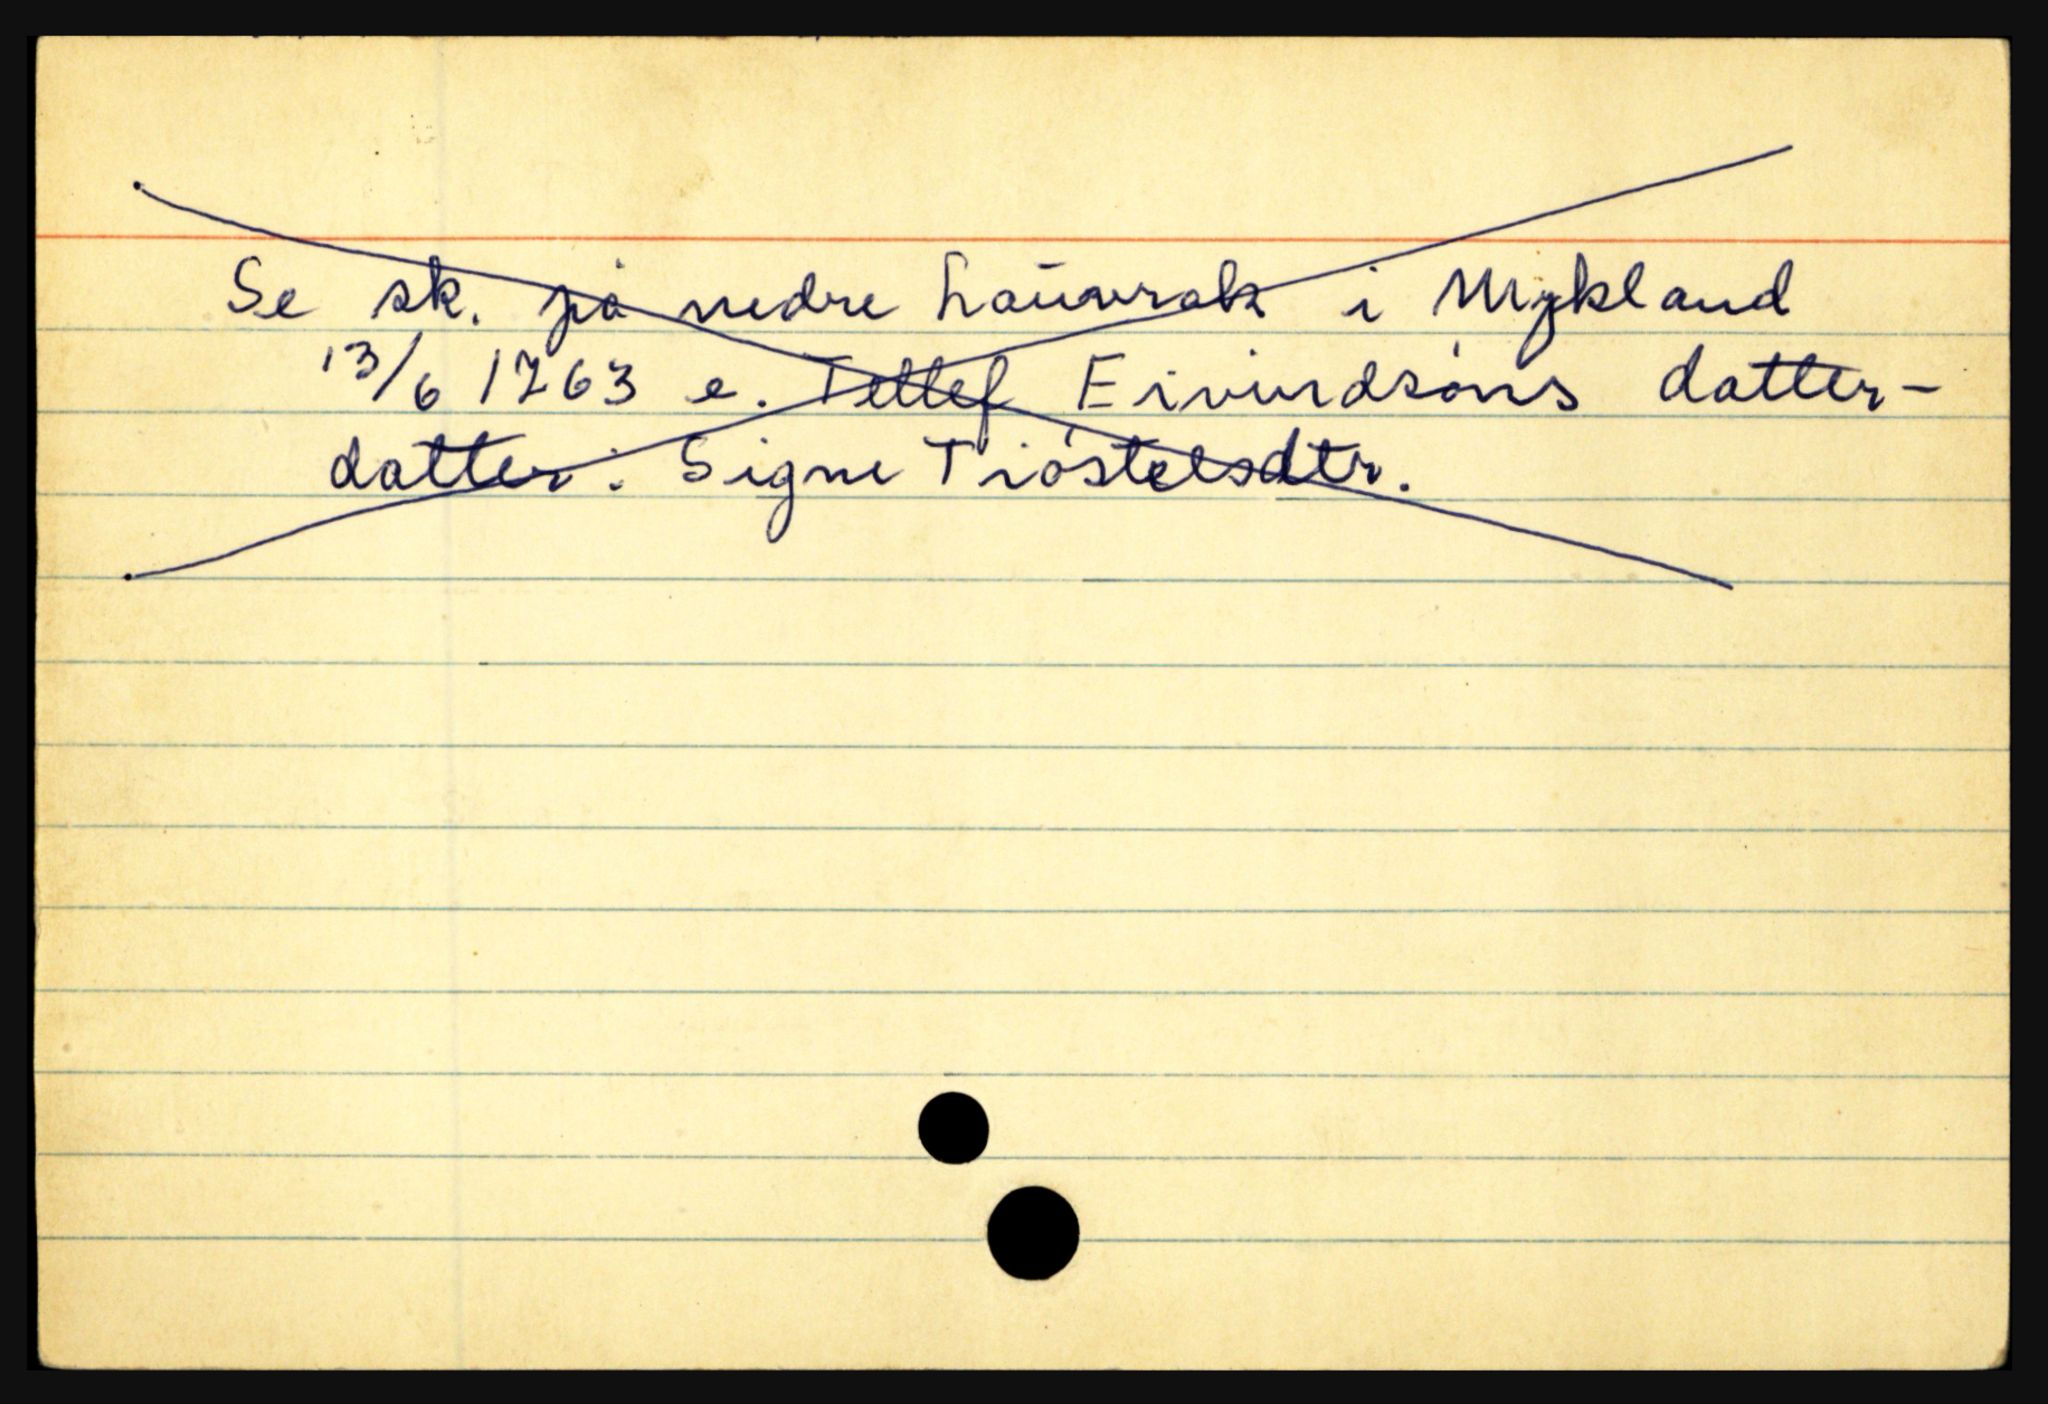 Se sk. på nedre Lauvrak i Mykland
13/6 1763 e. Tellef Eivindsöns datter-
datter: Signe Tjöstelsdtr.